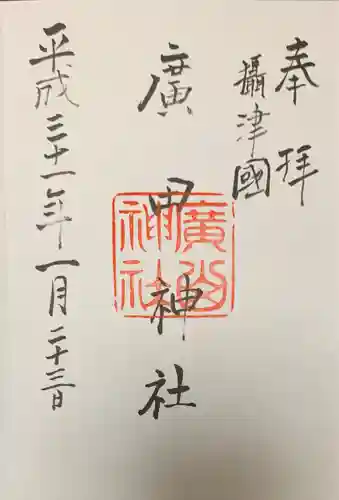 奉拝
攝津國
廣田神社
廣田神社
平成三十一年一月二十三日